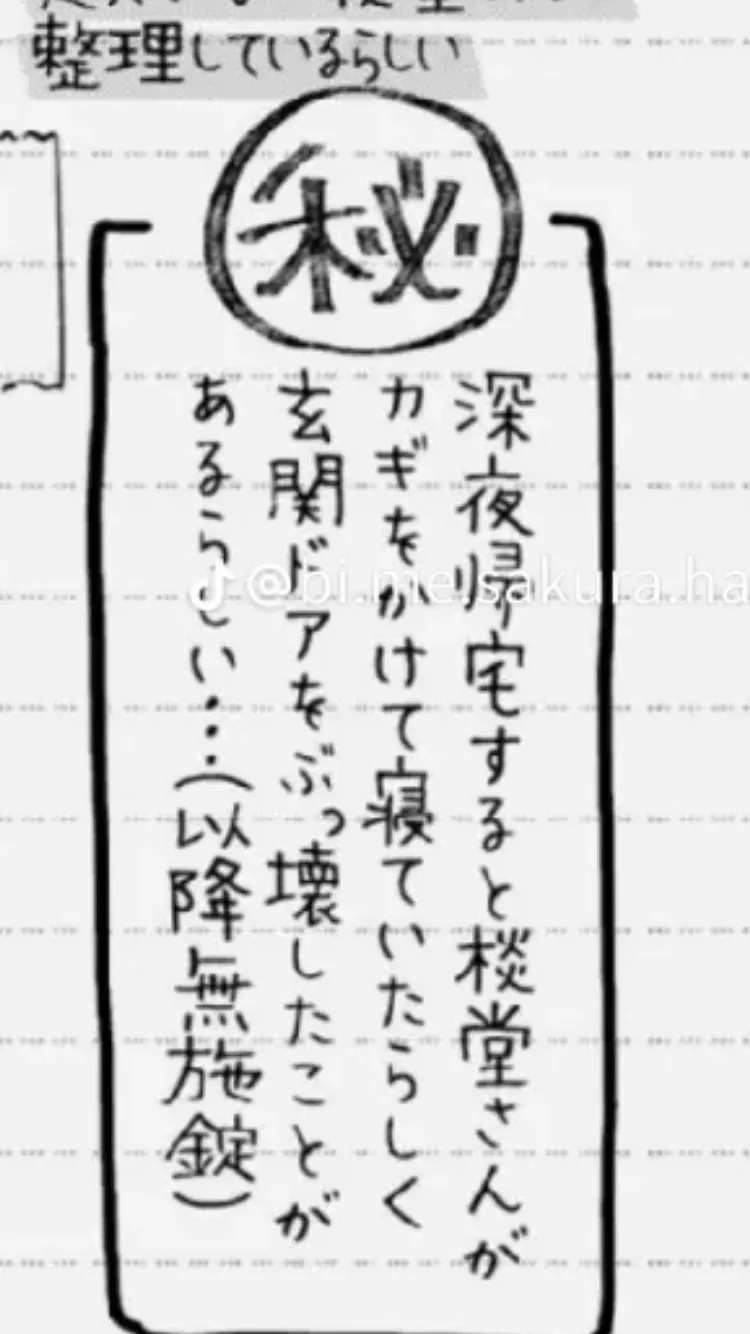 整理しているらしい
秘
深夜帰宅すると棪堂さんが
カギをかけて寝ていたらしく
玄関ドアをぶっ壊したことが
あるらしい…(以降無施錠)
@bi.me.sakura.ha